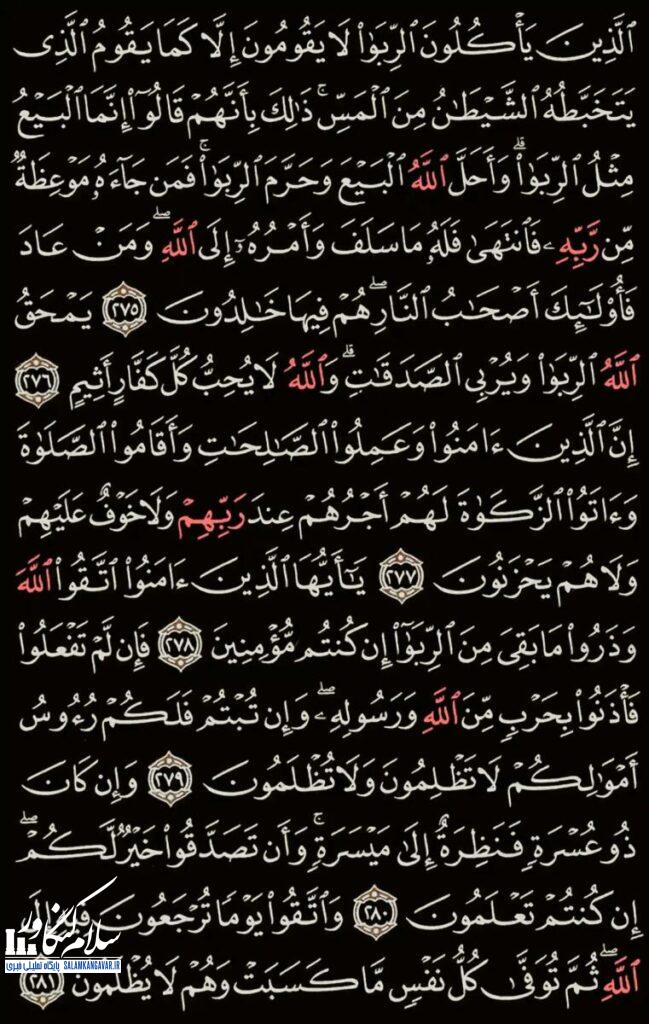 ٱلَّذِينَ يَأۡكُلُونَ ٱلرِّبَوٰاْ لَا يَقُومُونَ إِلَّا كَمَا يَقُومُ ٱلَّذِى
يَتَخَبَّطُهُ ٱلشَّيۡطَٰنُ مِنَ ٱلۡمَسِّۚ ذَٰلِكَ بِأَنَّهُمۡ قَالُوٓاْ إِنَّمَا ٱلۡبَيۡعُ
مِثۡلُ ٱلرِّبَوٰاْۗ وَأَحَلَّ ٱللَّهُ ٱلۡبَيۡعَ وَحَرَّمَ ٱلرِّبَوٰاْۚ فَمَن جَآءَهُۥ مَوۡعِظَةٌ
مِّن رَّبِّهِۦ فَٱنتَهَىٰ فَلَهُۥ مَا سَلَفَ وَأَمۡرُهُۥٓ إِلَى ٱللَّهِۖ وَمَنۡ عَادَ
فَأُوْلَٰٓئِكَ أَصۡحَٰبُ ٱلنَّارِۖ هُمۡ فِيهَا خَٰلِدُونَ ٢٧٥ يَمۡحَقُ
ٱللَّهُ ٱلرِّبَوٰاْ وَيُرۡبِى ٱلصَّدَقَٰتِۗ وَٱللَّهُ لَا يُحِبُّ كُلَّ كَفَّارٍ أَثِيمٍ ٢٧٦
إِنَّ ٱلَّذِينَ ءَامَنُواْ وَعَمِلُواْ ٱلصَّٰلِحَٰتِ وَأَقَامُواْ ٱلصَّلَوٰةَ
وَءَاتَوُاْ ٱلزَّكَوٰةَ لَهُمۡ أَجۡرُهُمۡ عِندَ رَبِّهِمۡ وَلَا خَوۡفٌ عَلَيۡهِمۡ
وَلَا هُمۡ يَحۡزَنُونَ ٢٧٧ يَٰٓأَيُّهَا ٱلَّذِينَ ءَامَنُواْ ٱتَّقُواْ ٱللَّهَ
وَذَرُواْ مَا بَقِىَ مِنَ ٱلرِّبَوٰٓاْ إِن كُنتُم مُّؤۡمِنِينَ ٢٧٨ فَإِن لَّمۡ تَفۡعَلُواْ
فَأۡذَنُواْ بِحَرۡبٍ مِّنَ ٱللَّهِ وَرَسُولِهِۦۖ وَإِن تُبۡتُمۡ فَلَكُمۡ رُءُوسُ
أَمۡوَٰلِكُمۡ لَا تَظۡلِمُونَ وَلَا تُظۡلَمُونَ ٢٧٩ وَإِن كَانَ
ذُو عُسۡرَةٍ فَنَظِرَةٌ إِلَىٰ مَيۡسَرَةٍۚ وَأَن تَصَدَّقُواْ خَيۡرٌ لَّكُمۡۖ
إِن كُنتُمۡ تَعۡلَمُونَ ٢٨٠ وَٱتَّقُواْ يَوۡمًا تُرۡجَعُونَ فِيهِ إِلَى
ٱللَّهِۖ ثُمَّ تُوَفَّىٰ كُلُّ نَفۡسٍ مَّا كَسَبَتۡ وَهُمۡ لَا يُظۡلَمُونَ ٢٨١
سلام کنگاور
پایگاه تحلیلی خبری SALAMKANGAVAR.IR